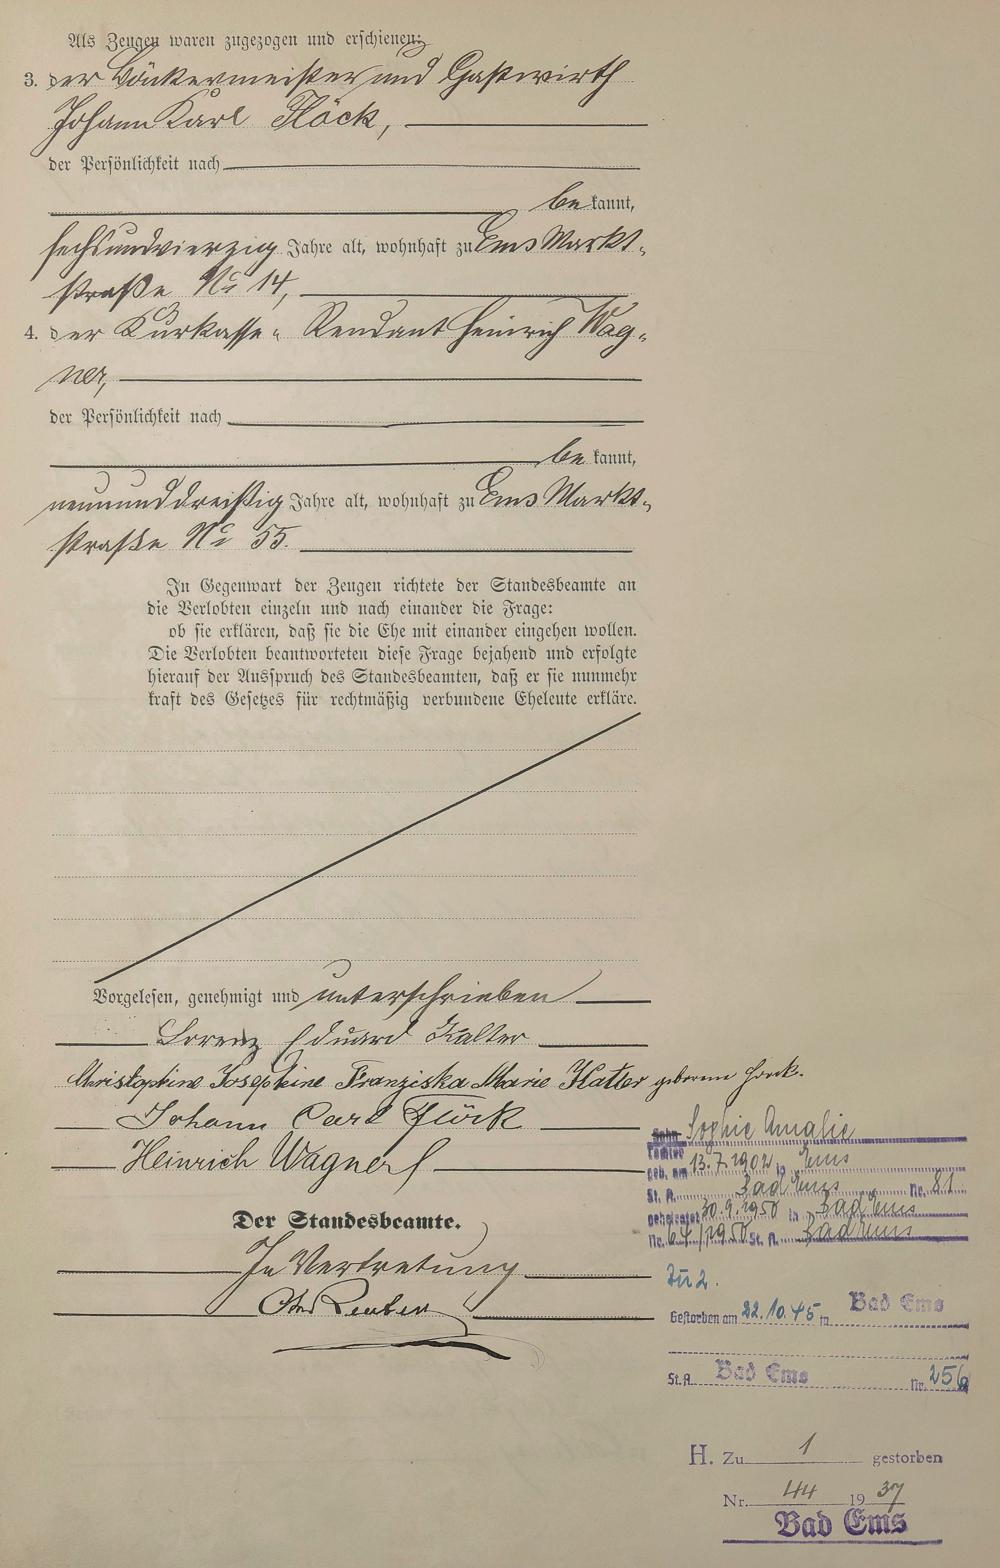 Als Zeugen waren zugezogen und erschienen:
3. der Bäckermeister und Gastwirth
Johann Karl Flöck,
der Persönlichkeit nach
be kannt,
sechsundvierzig Jahre alt, wohnhaft zu Ems Markt-
straße No 14,
4. der Kurkasse-Rendant Heinrich Wag-
ner,
der Persönlichkeit nach
be kannt,
neununddreißig Jahre alt, wohnhaft zu Ems Markt-
straße No 55.
In Gegenwart der Zeugen richtete der Standesbeamte an
die Verlobten einzeln und nach einander die Frage:
ob sie erklären, daß sie die Ehe mit einander eingehen wollen.
Die Verlobten beantworteten diese Frage bejahend und erfolgte
hierauf der Ausspruch des Standesbeamten, daß er sie nunmehr
kraft des Gesetzes für rechtmäßig verbundene Eheleute erkläre.
Vorgelesen, genehmigt und unterschrieben
Lorenz Eduard Kalter
Christophine Josephine Franziska Marie Kalter geborene
Johann Carl Flöck
Heinrich Wagner
Der Standesbeamte.
In Vertretung
Sohn Sophie Amalie
Tochter
geb. am 13.7.1902 in Ems
St. A. Bad Ems Nr. 81
geheiratet 30.9.1950 in Bad Ems
Nr. 64/1950 St. A. Bad Ems
Zu 2.
Gestorben am 22.10.45 in Bad Ems
St. A. Bad Ems Nr. 256
H. Zu 1 gestorben
Nr. 44 1937
Bad Ems